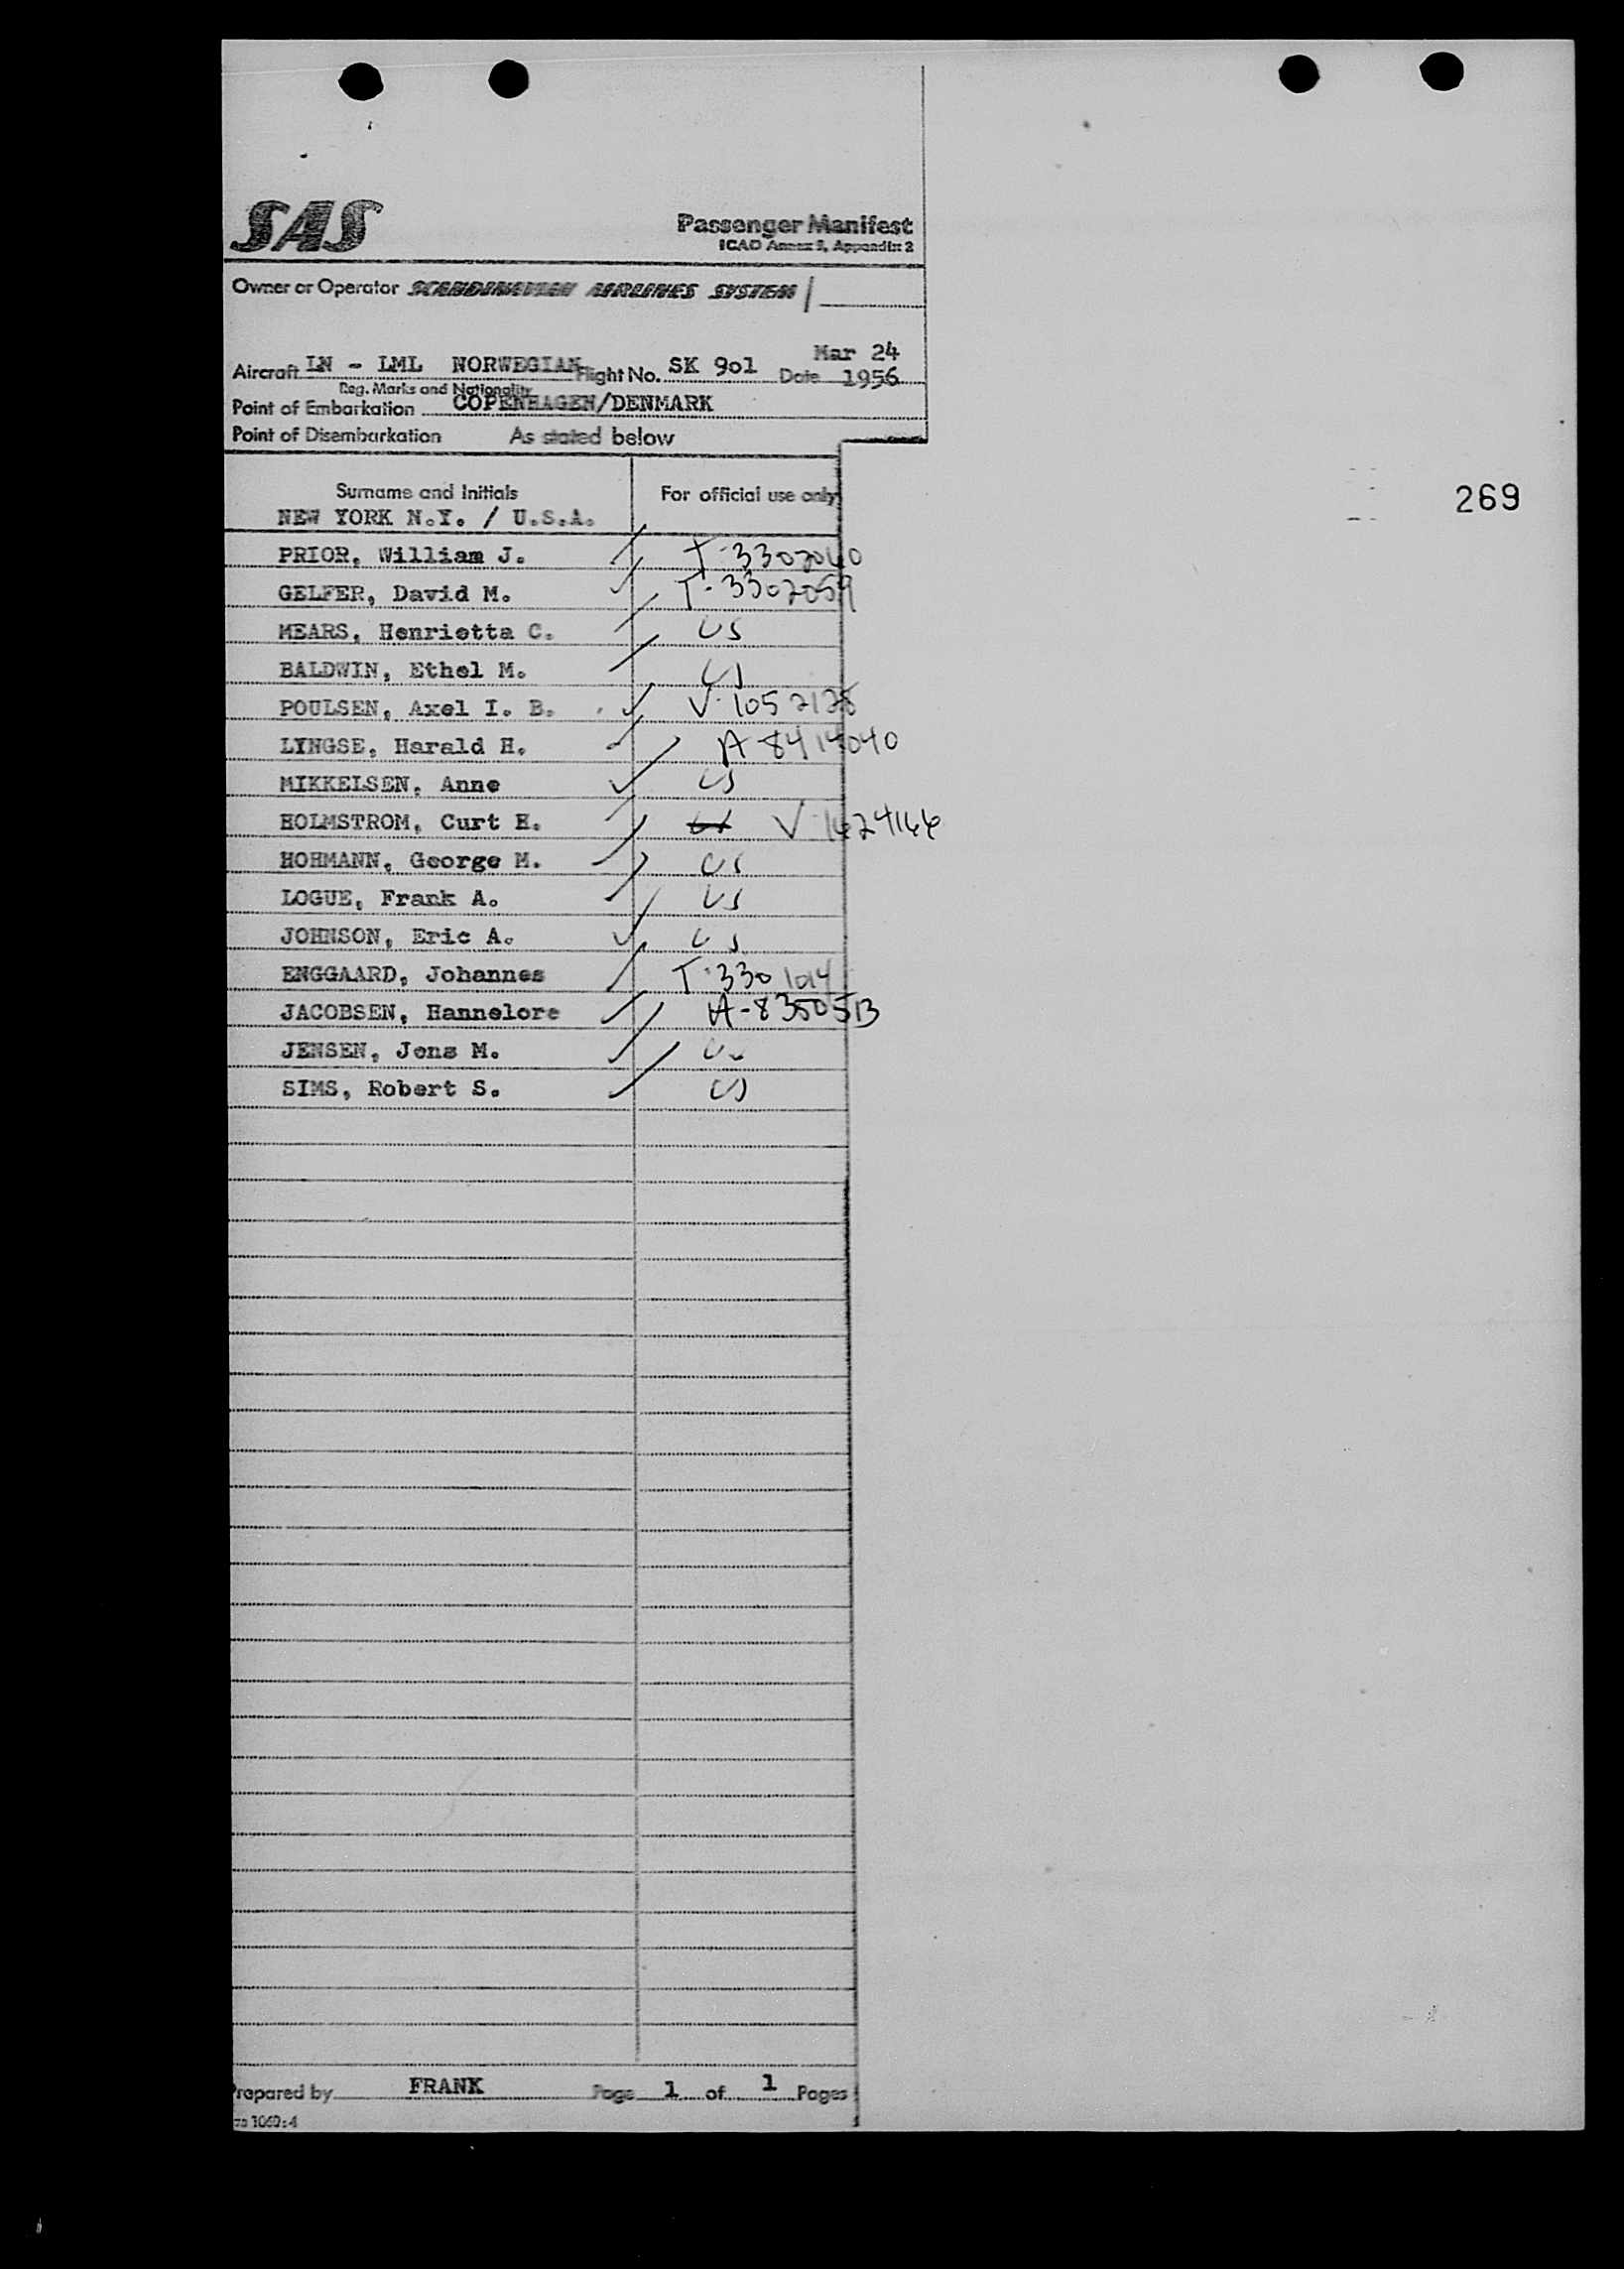 SAS
Passenger Manifest
ICAO Annex 9, Appendix 2
Owner or Operator SCANDINAVIAN AIRLINES SYSTEM /
Mar 24
Aircraft LN - LML NORWEGIAN Flight No. SK 9o1 Date 1956
Reg. Marks and Nationality
Point of Embarkation COPENHAGEN/DENMARK
Point of Disembarkation As stated below
Surname and Initials For official use only
269
NEW YORK N.Y. / U.S.A.
PRIOR, William J. T-3302040
GELFER, David M. T-3302059
MEARS, Henrietta C. US
BALDWIN, Ethel M. US
POULSEN, Axel I. B. V-1052128
LYNGSE, Harald H. A-8414040
MIKKELSEN, Anne US
HOLMSTROM, Curt H. US
HOHMANN, George M. US
LOGUE, Frank A. US
JOHNSON, Eric A. US
ENGGAARD, Johannes T-3301014
JACOBSEN, Hannelore A-8350513
JENSEN, Jens M. US
SIMS, Robert S. US
Prepared by FRANK Page 1 of 1 Pages
1060:4